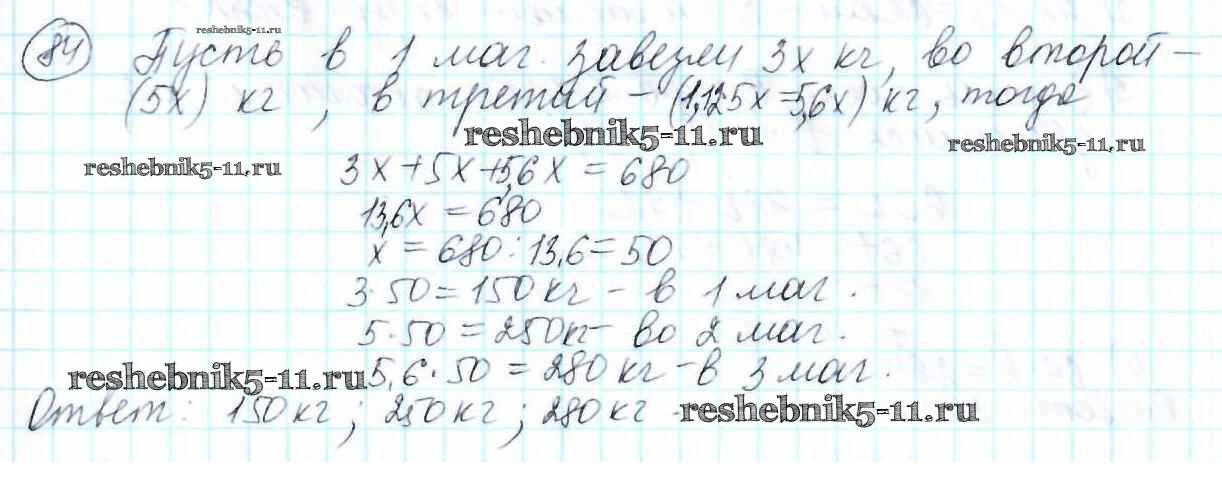 reshebnik5-11.ru
84 Пусть в 1 маг. завезли 3х кг, во второй –
(5х) кг, в третий – (1,12·5х=5,6х) кг, тогда
reshebnik5-11.ru
reshebnik5-11.ru
reshebnik5-11.ru
3х+5х+5,6х = 680
13,6х = 680
х = 680:13,6=50
3·50=150кг – в 1 маг.
5·50 = 250кг– во 2 маг.
reshebnik5-11.ru 5,6·50 = 280кг –в 3 маг.
Ответ: 150кг; 250кг; 280кг reshebnik5-11.ru